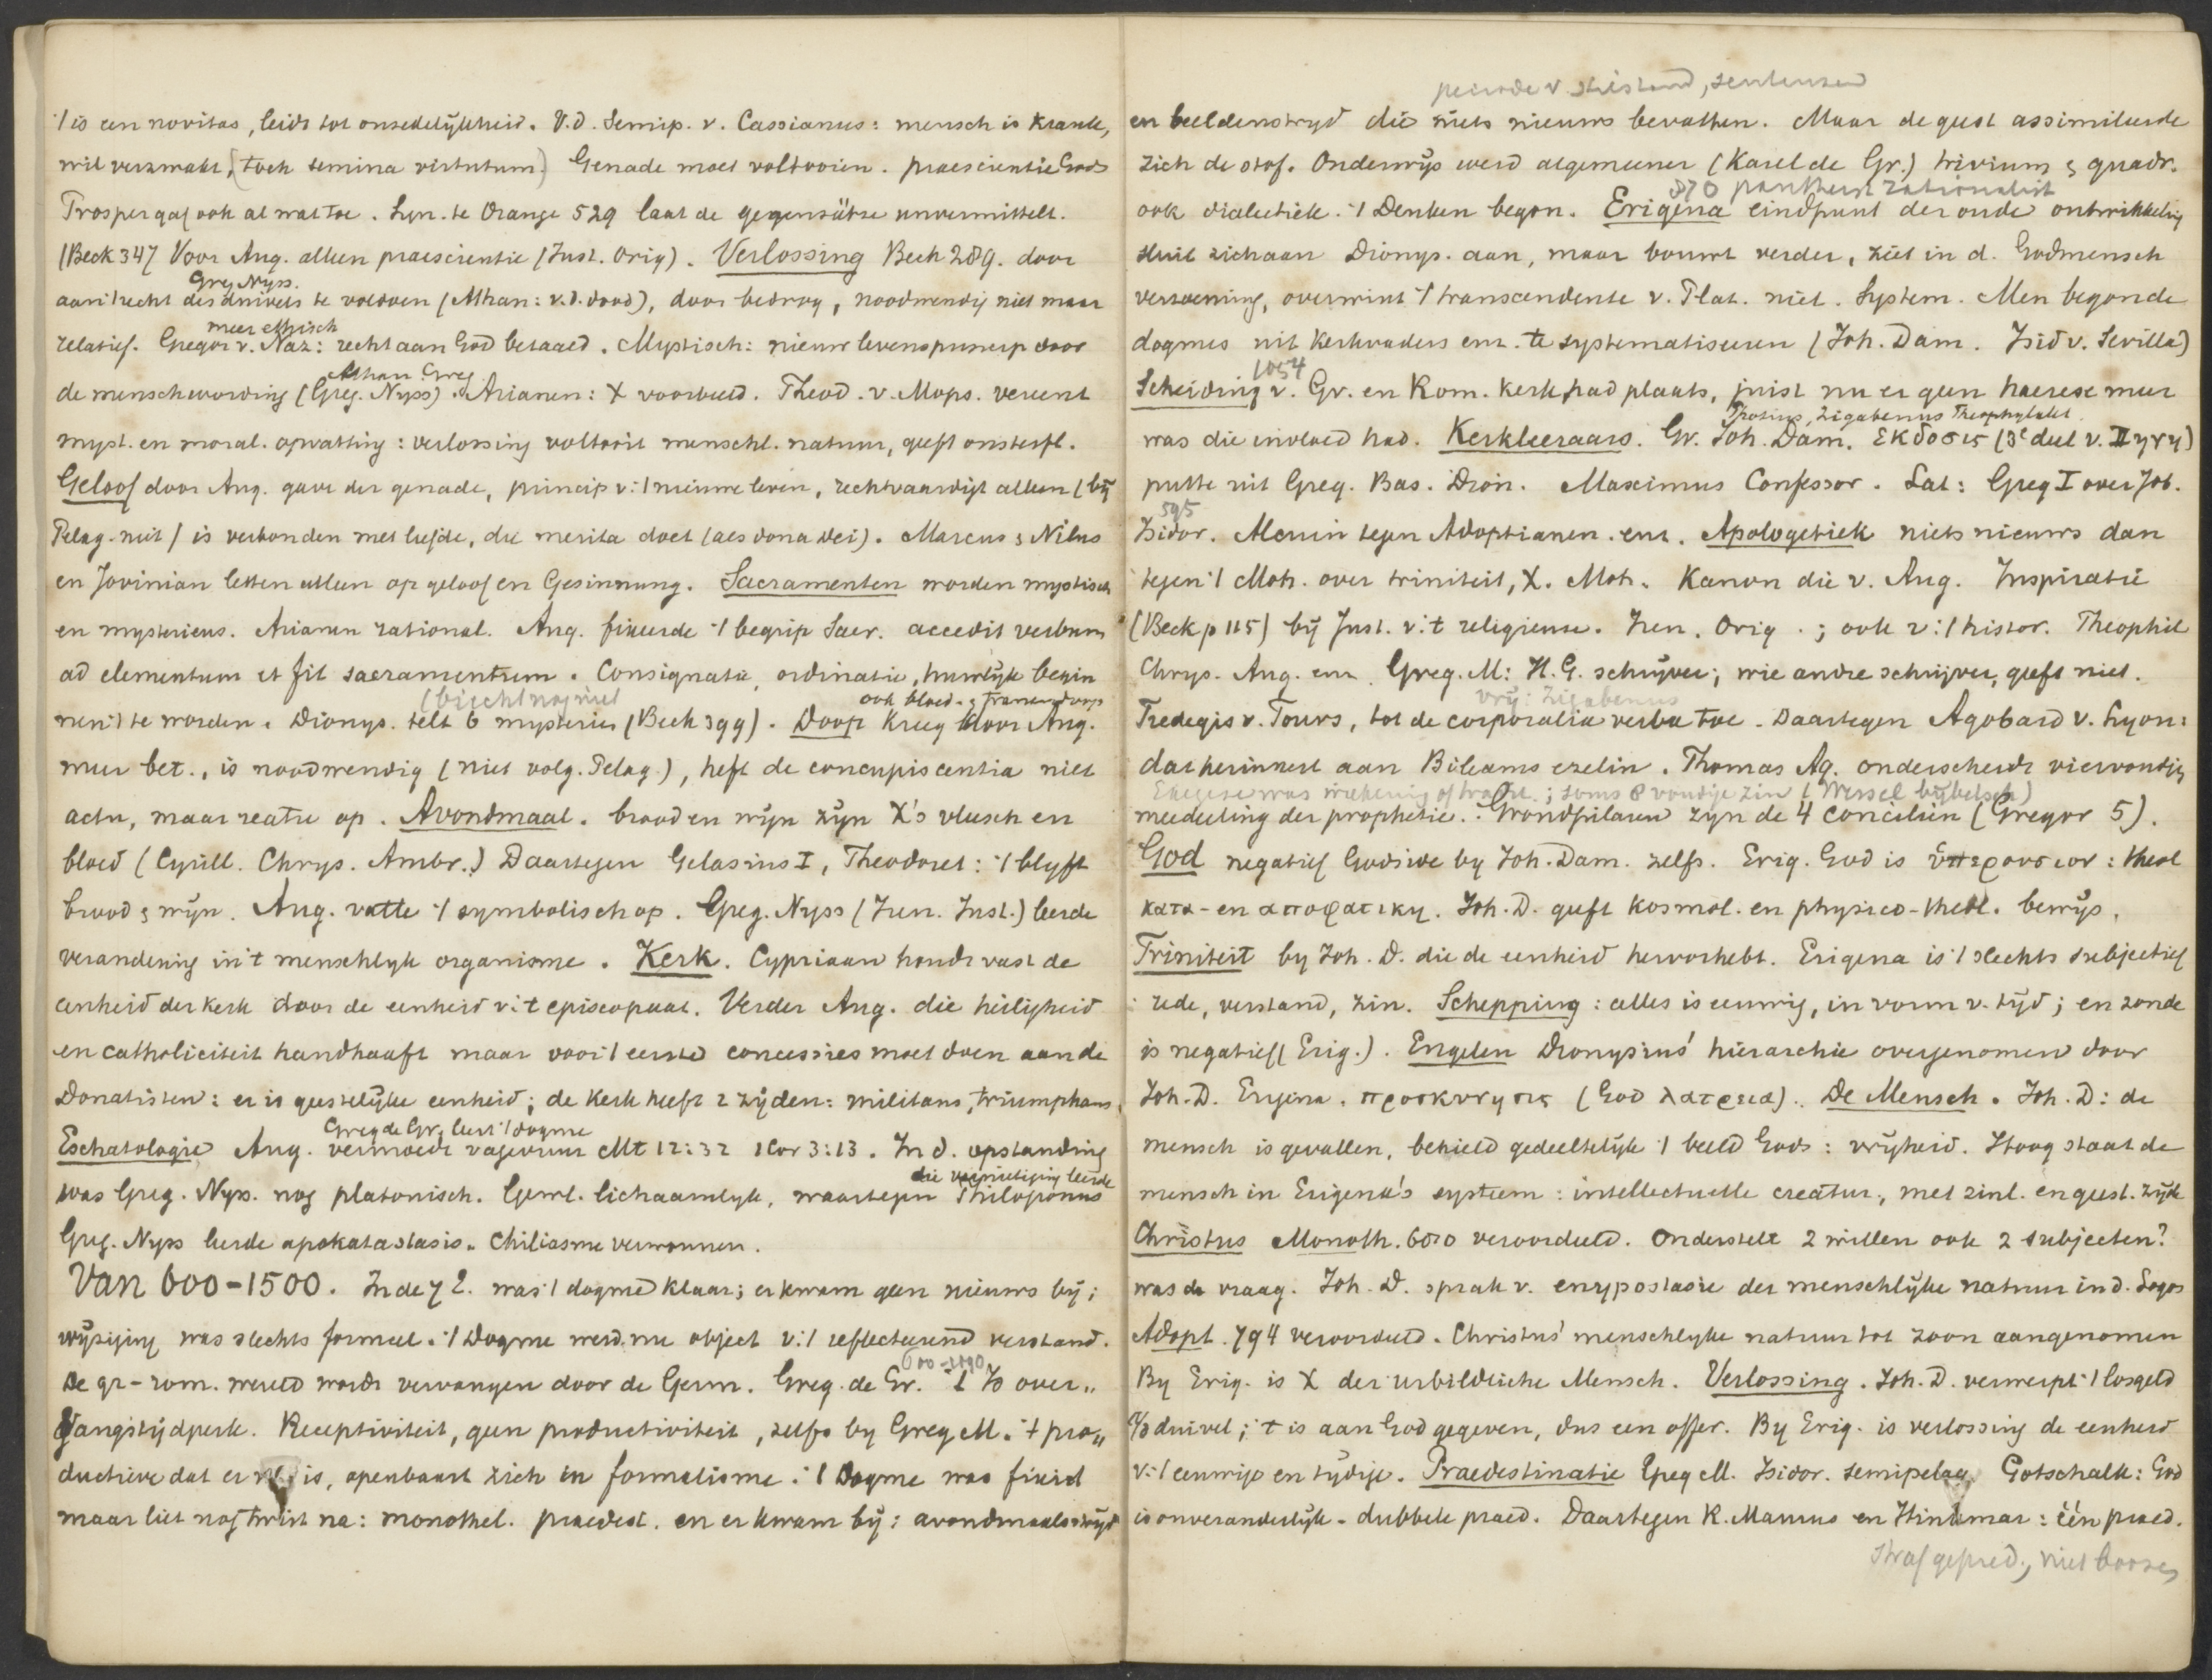 't is een novitas, leidt tot onzedelijkheid. V.d. Semip. v. Cassianus: mensch is krank,
wil verzwakt, (toch semina virtutum.) Genade moet voltooien. praescientie Gods
Prosper gaf ook al wat toe. Syn. te Orange 529 laat de gegensätze unvermittelt.
(Beck 347 Voor Aug. alleen praescientie (Just. Orig). Verlossing Beck 289. door
Greg Nyss.
aan 't recht des duivels te voldoen (Athan: v.d. dood), door bedrog, noodwendig niet maar
meer ethisch
relatief. Gregor v. Naz: recht aan God betaald. Mystisch: nieuw levensprincip door
Athan Greg
de menschwording (Greg. Nyss). Arianen: X voorbeeld. Theod. v. Mops. vereent
myst. en moral. opvatting: verlossing voltooit menschl. natuur, geeft onsterfl.
Geloof door Aug. gave der genade, princip v. 't nieuwe leven, rechtvaardigt alleen (bij
Pelag. niet) is verbonden met liefde, die merita doet (als dona dei). Marcus & Nilus
en Jovinian letten alleen op geloof en Gesinnung. Sacramenten worden mystisch
en mysterieus. Arianen rational. Aug. fixeerde 't begrip Sacr. accedit verbum
ad elementum et fit sacramentum. Consignatie, ordinatie, huwlijk begin
(biecht nog niet
ook bloed- & tranendoop
nen 't te worden. Dionys. telt 6 mysterien (Beck 399). Doop kreeg door Aug.
meer bet., is noodwendig (niet volg. Pelag.), heft de concupiscentia niet
actu, maar reatu op. Avondmaal. brood en wijn zijn X's vleesch en
bloed (Cyrill. Chrys. Ambr.) Daartegen Gelasius I, Theodoret: 't blijft
brood & wijn. Aug. vatte 't symbolisch op. Greg. Nyss (Iren. Just.) leerde
verandering in 't menschlijk organisme. Kerk. Cypriaan houdt vast de
eenheid der kerk door de eenheid v. 't episcopaat. Verder Aug. die heiligheid
en catholiciteit handhaaft maar voor 't eerst concessies moet doen aan de
Donatisten: er is geestelijke eenheid; de kerk heeft 2 zijden: militans, triumphans,
Greg de Gr. leert 't dogme
Eschatologie Aug. vermoedt vagevuur Mt 12:32 1 Cor 3:13. In d. opstanding
die vernietiging leerde
was Greg. Nyss. nog platonisch. Gewl. lichaamlyk, waartegen Philoponus
Greg. Nyss leerde apokatastasis. Chiliasme verwonnen.
Van 600-1500. In de 7 e. was 't dogme klaar; er kwam geen nieuws bij;
wijziging was slechts formeel. 't Dogme werd nu object v. 't reflecteerend verstand.
600-1100
De gr-rom. wereld wordt vervangen door de Germ. Greg. de Gr. over"
gangstijdperk. Receptiviteit, geen productiviteit, zelfs by Greg M. 't pro"
ductieve dat er is, openbaart zich in formalisme. 't Dogme was fixirt
maar liet nog twist na: monothel. praedest. en er kwam bij: avondmaalsstrijd
periode v. stilstand, sentenzen
en beeldenstryd die niets nieuws bevatten. Maar de geest assimileerde
zich de stof. Onderwijs werd algemeener (Karel de Gr.) trivium & quadr.
870 pantheist rationalist
ook dialectiek. 't Denken begon. Erigena eindpunt der oude ontwikkeling
sluit zich aan Dionys. aan, maar bouwt verder, ziet in d. Godmensch
verzoening, overwint 't transcendente v. Plat. niet. System. Men begon de
dogmes uit kerkvaders enz. te systematiseren (Joh. Dam. Isid v. Sevilla)
1054
Scheiding v. Gr. en Rom. kerk had plaats, juist nu er geen haerese meer
Photius, Zigabenus Theophylakt.
was die invloed had. Kerkleeraars. Gr. Joh. Dam. εκδοσις (3e deel v. πηγη)
putte uit Greg. Bas. Dion. Maximus Confessor. Lat: Greg I over Job.
595
Isidor. Alcuin tegen Adoptianen. enz. Apologetiek niets nieuws dan
tegen 't Moh. over triniteit, X. Moh. Kanon die v. Aug. Inspiratie
(Beck p 115) bij Just. v. 't religieuse. Iren. Orig.; ook v. 't histor. Theophil
Chrys. Aug. enz. Greg. M: H.G. schrijver; wie andre schrijver, geeft niet.
vrij: Zigabenus
Fredegis v. Tours, tot de corporalia verba toe. Daartegen Agobard v. Lyon:
dat herinnert aan Bileams ezelin. Thomas Aq. onderscheidt viervoudig
Exegese was ; soms 8 voudige zin (Wessel bijbelsch)
meedeeling der prophetie. Grondpilaren zijn de 4 concilien (Gregor 5).
God negatief Godsidee by Joh. Dam. zelfs. Erig. God is ὑπερουσιον: theol
κατα- en αποφατικη. Joh. D. geeft kosmol. en physico-theol. bewijs.
Triniteit by Joh. D. die de eenheid hervorhebt. Erigena is 't slechts subjectief
: rede, verstand, zin. Schepping: alles is eeuwig, in vorm v. tijd; en zonde
is negatief (Erig.). Engelen Dionysius' hierarchie overgenomen door
Joh. D. Erigena. προσκυνησις (God λατρεια). De Mensch. Joh. D: de
mensch is gevallen, behield gedeeltelijk 't beeld Gods: vrijheid. Hoog staat de
mensch in Erigena's systeem: intellectuelle creatur, met zinl. en geest. zijde
Christus Monoth. 680 veroordeeld. Onderstelt 2 willen ook 2 subjecten?
was de vraag. Joh. D. sprak v. enypostasie der menschlijke natuur in d. Logos
Adopt. 794 veroordeeld. Christus' menschlyke natuur tot zoon aangenomen
By Erig. is X der urbildliche Mensch. Verlossing. Joh. D. verwerpt 't losgeld
a/d duivel; 't is aan God gegeven, dus een offer. By Erig. is verlossing de eenheid
v. 't eeuwige en tijdige. Praedestinatie Greg M. Isidor. semipelag. Gotschalk: God
is onveranderlijk - dubbele praed. Daartegen R. Maurus en Hinkmar: één praed.
straf gepred., niet booze